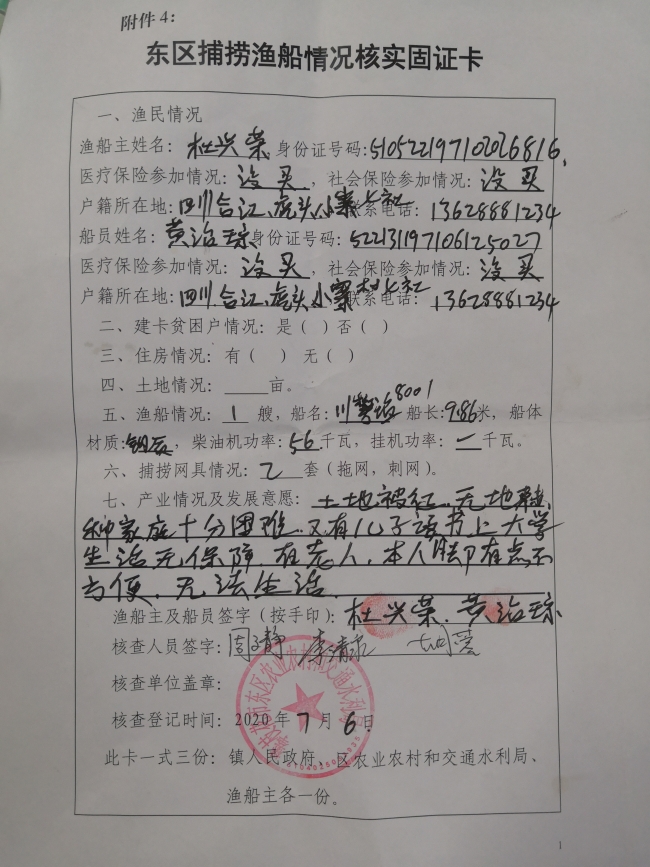 附件4：
东区捕捞渔船情况核实固证卡
一、渔民情况
渔船主姓名：杜兴荣 身份证号码：510522197102026816
医疗保险参加情况：没买，社会保险参加情况：没买
户籍所在地：四川合江虎头小寨七社 联系电话：13628881234
船员姓名：黄治琼 身份证号码：522131197106125027
医疗保险参加情况：没买，社会保险参加情况：没买
户籍所在地：四川合江虎头小寨 七社 联系电话：13628881234
二、建卡贫困户情况：是（ ）否（ ）
三、住房情况：有（ ） 无（ ）
四、土地情况：____亩。
五、渔船情况：1 艘，船名：川 8001 船长：9.86米，船体
材质：钢质，柴油机功率：56千瓦，挂机功率：一千瓦。
六、捕捞网具情况：2 套（拖网，刺网）。
七、产业情况及发展意愿：土地被征，无地耕
种家庭十分困难。又有儿子读书上大学
生活无保障，有老人，本人脚有点不
方便，无法生活。
渔船主及船员签字（按手印）：杜兴荣、黄治琼
核查人员签字：
核查单位盖章：
东区农业农村和交通水利局
核查登记时间：2020年7月6日
此卡一式三份：镇人民政府、区农业农村和交通水利局、
渔船主各一份。
1